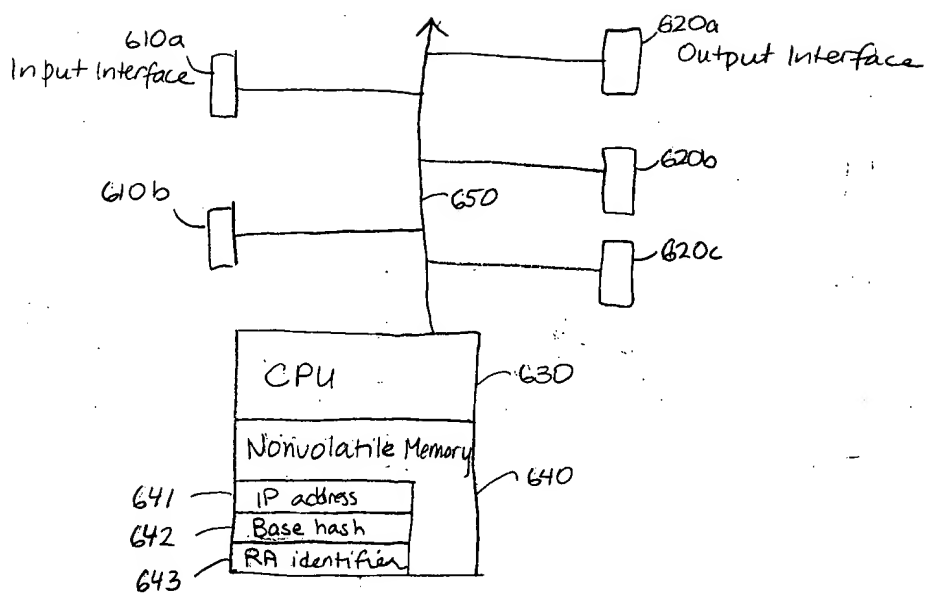 610a
Input Interface
620a
Output Interface
610b
620b
650
620c
CPU
630
Nonvolatile Memory
640
641
IP address
642
Base hash
643
RA identifier